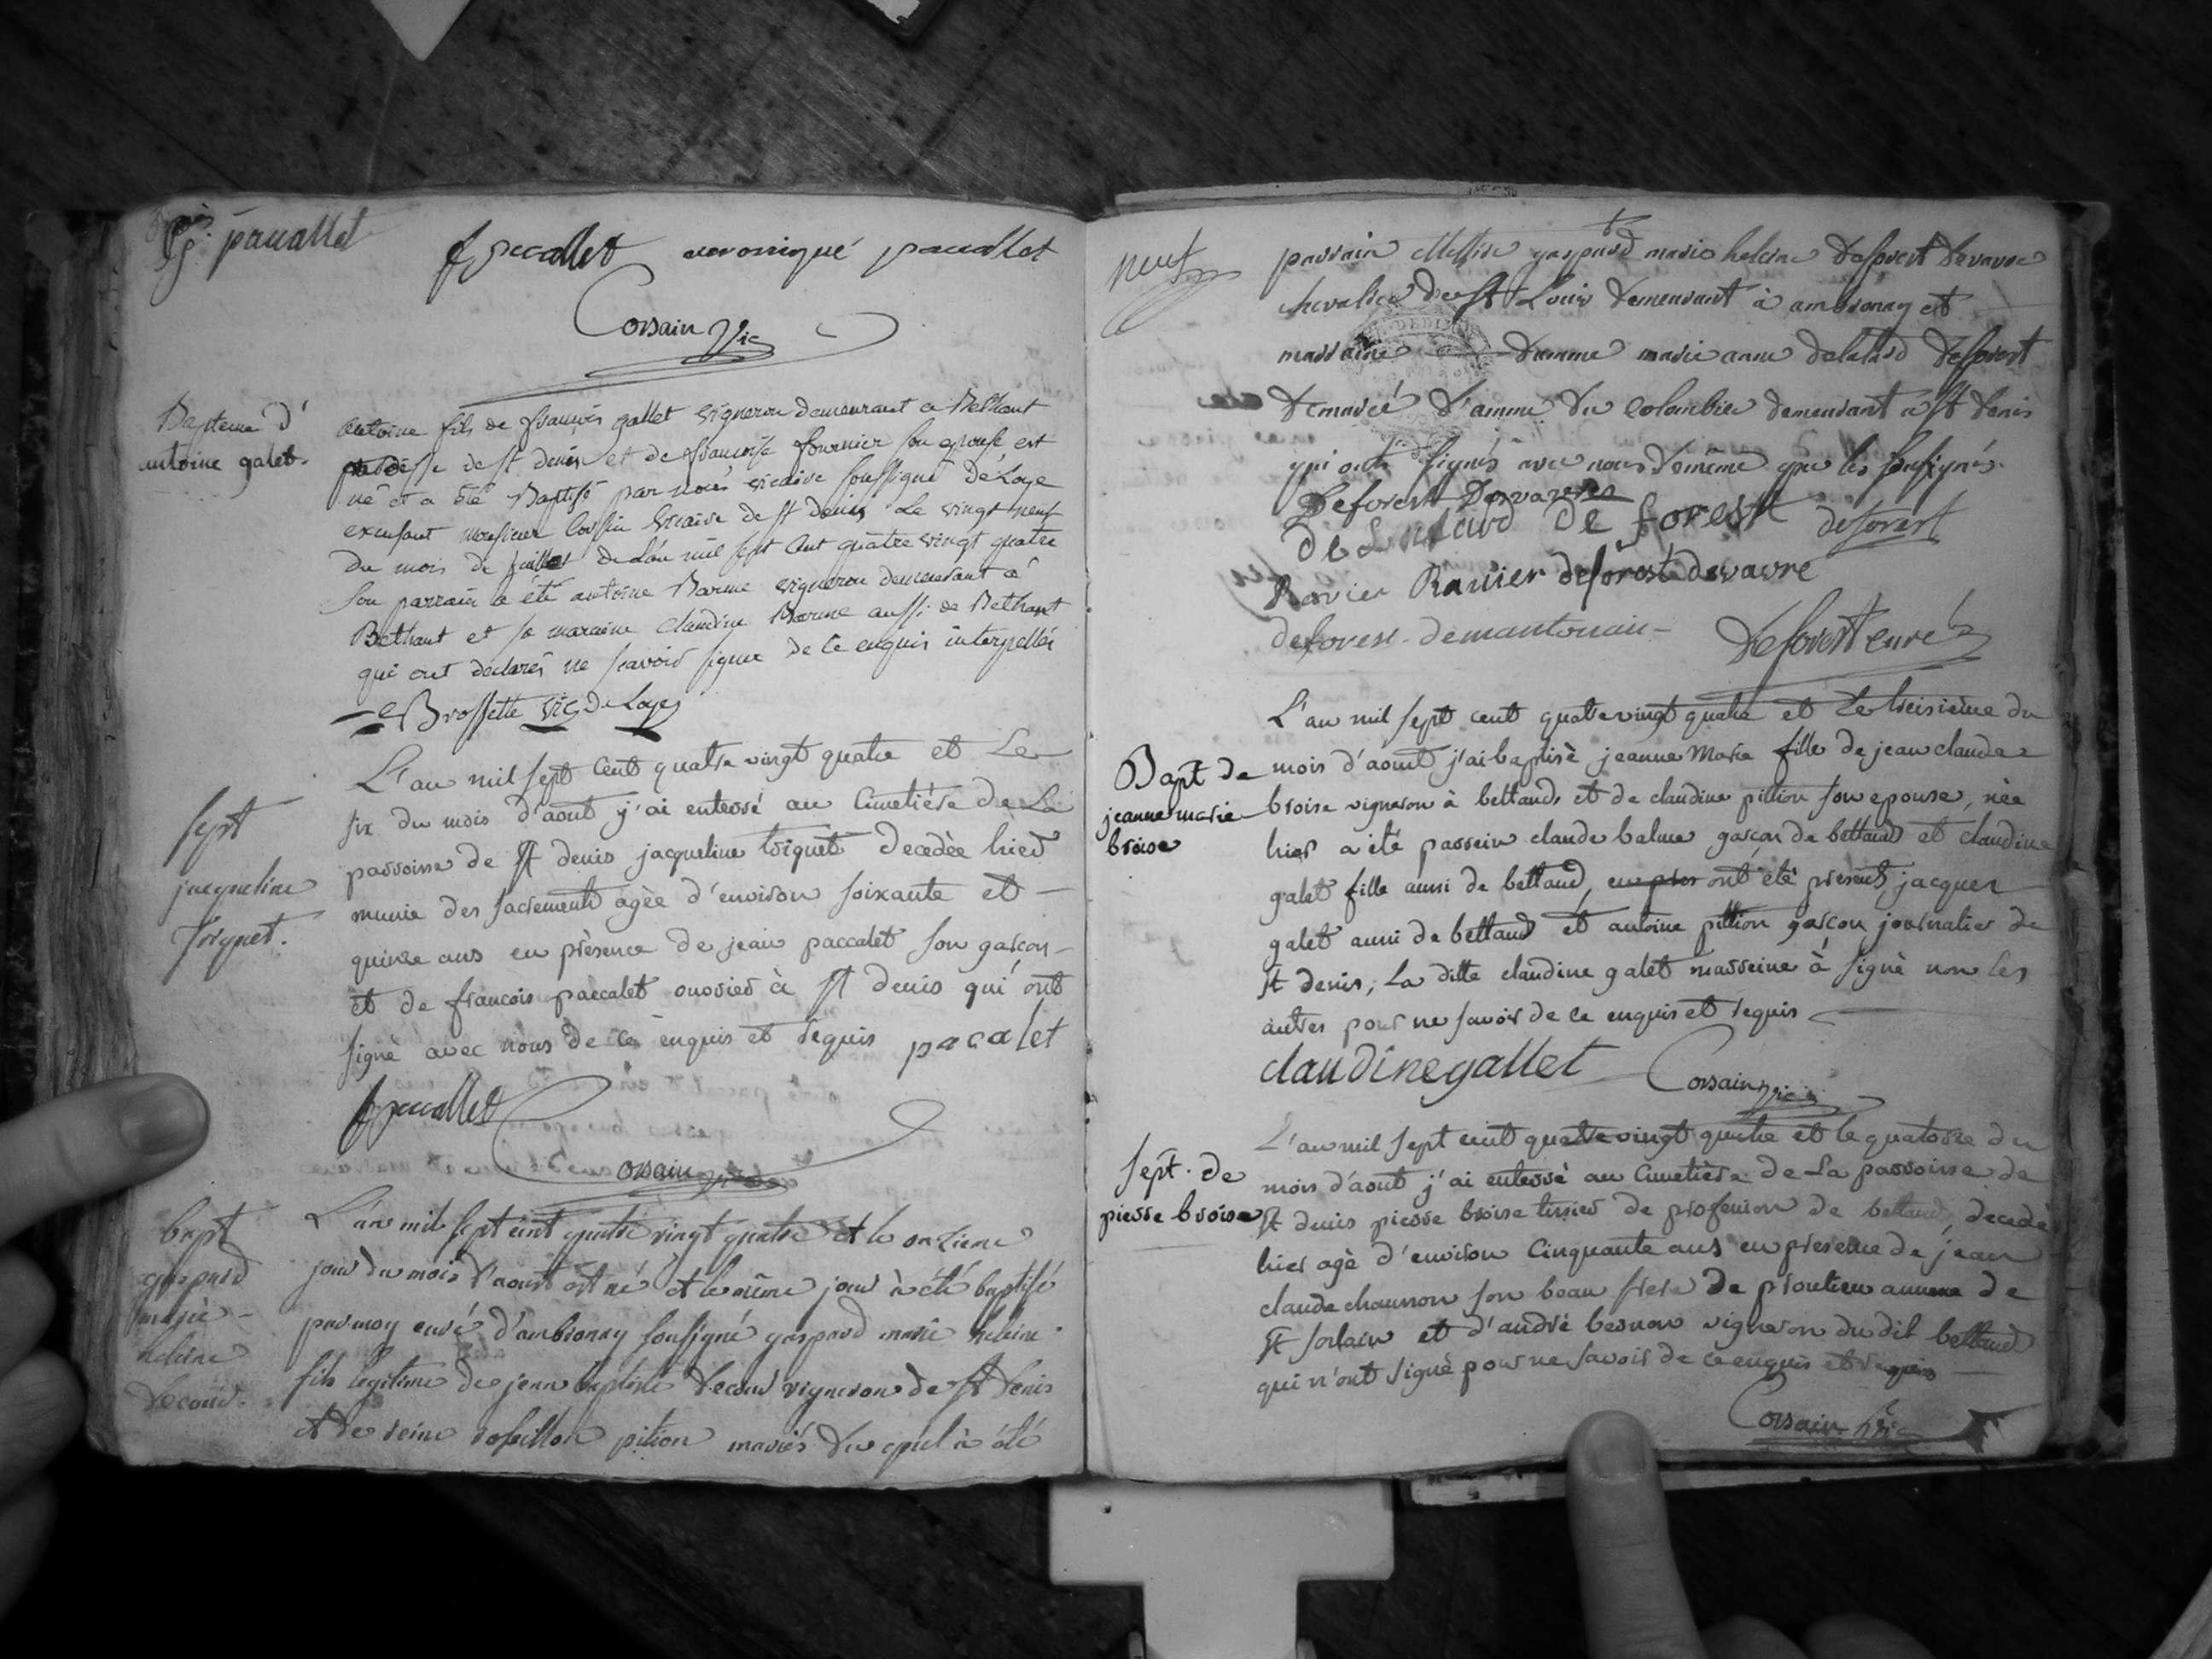 pj. pacallet
f paccallet veronique pacallet
Corsain Vic
Bapteme d'
antoine galet.
antoine fils de françois gallet vigneron demeurant a Bethant
paroisse de st denis et de françoise fournier son epouse est
né et a été Baptisé par nous vicaire soussigné de Loye
excusant monsieur Corsin vicaire de st denis Le vingt neuf
du mois de juillet de L'an mil sept cent quatre vingt quatre
son parrain a été antoine Barme vigneron demeurant a
Bethant et sa maraine claudine Barme aussi de Bethant
qui ont déclarés ne scavoir signer de ce enquis interpellés
Brossette vic de Loye
sept
jacqueline
L'an mil sept cent quatre vingt quatre et Le
six du mois d'aout j'ai enterré au Cimetière de La
parroisse de st denis jacqueline decedèe hier
munie des sacrements agèe d'environ soixante et
quinze ans en prèsence de jean paccalet son garçon
et de francois paccalet ouvrier à st denis qui ont
signè avec nous de ce enquis et requis pacalet
f paccallet
Corsain vic
bapt
gaspard
marie
heleine
decour.
L'an mil sept cent quatre vingt quatre et le onzieme
jour du mois d'aoust est né et le même jour à été baptisé
par moy curé d'ambronay soussigné gaspard marie heleine
fils legitime de jean baptiste decour vigneron de st denis
et de reine pition mariés du quel à été
neuf
parrain Messire gaspard marie heleine deforest devavre
chevalier de st Louis demeurant à ambronay et
marraine damme marie anne delalard deforest
demarcé d'amme du colombier demeurant a st denis
qui onts signés avec nous de même que les sousignés.
Deforest Devavres
de Lalard de forest deforest
Ravier Ravier deforest devavre
deforest demantonan
Deforest curé
Bapt de
jeanne marie
broise
L'an mil sept cent quatrevingt quatre et Le treisième du
mois d'aout j'ai baptisè jeanne Marie fille de jean claude
broise vigneron à bettand et de claudine pittion son epouse, nèe
hier a été parrein claude balme garçon de bettand et claudine
galet fille aussi de bettand, en pres ont étè présents jacques
galet aussi de bettand et antoine pittion garçon journalier de
st denis; La ditte claudine galet marreine à signè non les
autres pour ne savoir de ce enquis et requis
claudine gallet Corsain Vic
sept. de
pierre broise
L'an mil sept cent quatre vingt quatre et le quatorze du
mois d'aout j'ai enterrè au Cimetière de La parroisse de
st denis pierre broise tissier de profession de bettand, decedè
hier agè d'environ Cinquante ans en presence de jean
claude chaumon son beau frere de proulieu annexe de
st sorlain et d'andrè besnon vigneron du dit bettand
qui n'ont signè pour ne savoir de ce enquis et requis
Corsain Vic